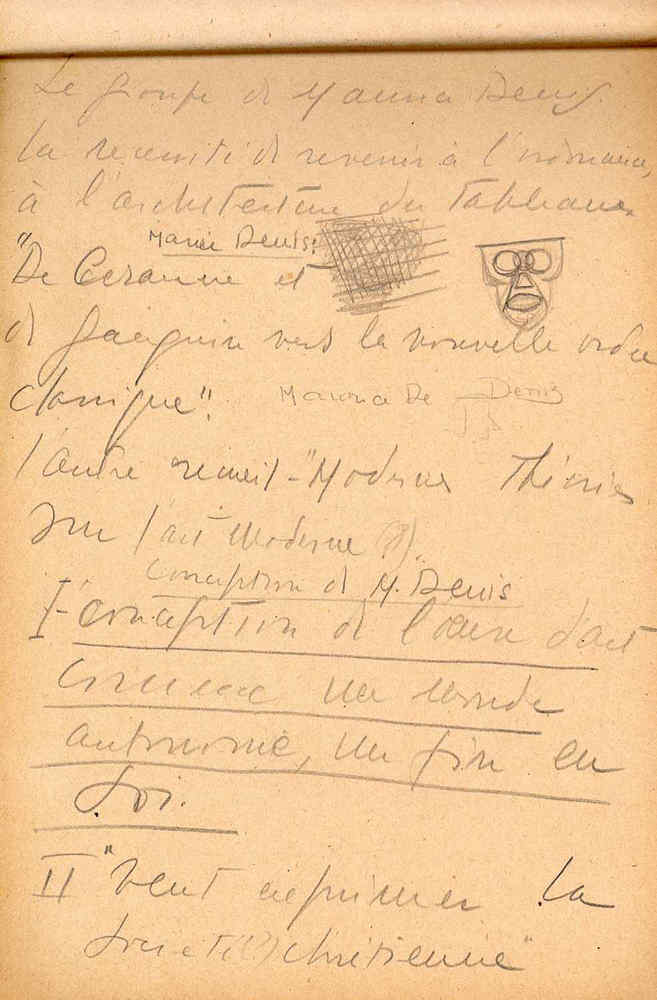 Le groupe de Maurice Denis
la necessité de revenir à l'ordonance,
à l'architecture du tableau.
Maurice Denis:
"De Cezanne et
de Gauguin vers la nouvelle ordre
classique".
Maurice De Denis
l'autre recueil - "Modernes Théories
sur l'art Moderne (?)
Conception de M. Denis
I - conception de l'œuvre d'art
comme un monde
autonome, un fin en
soi.
II "veut exprimer la
société (?) chrétienne"